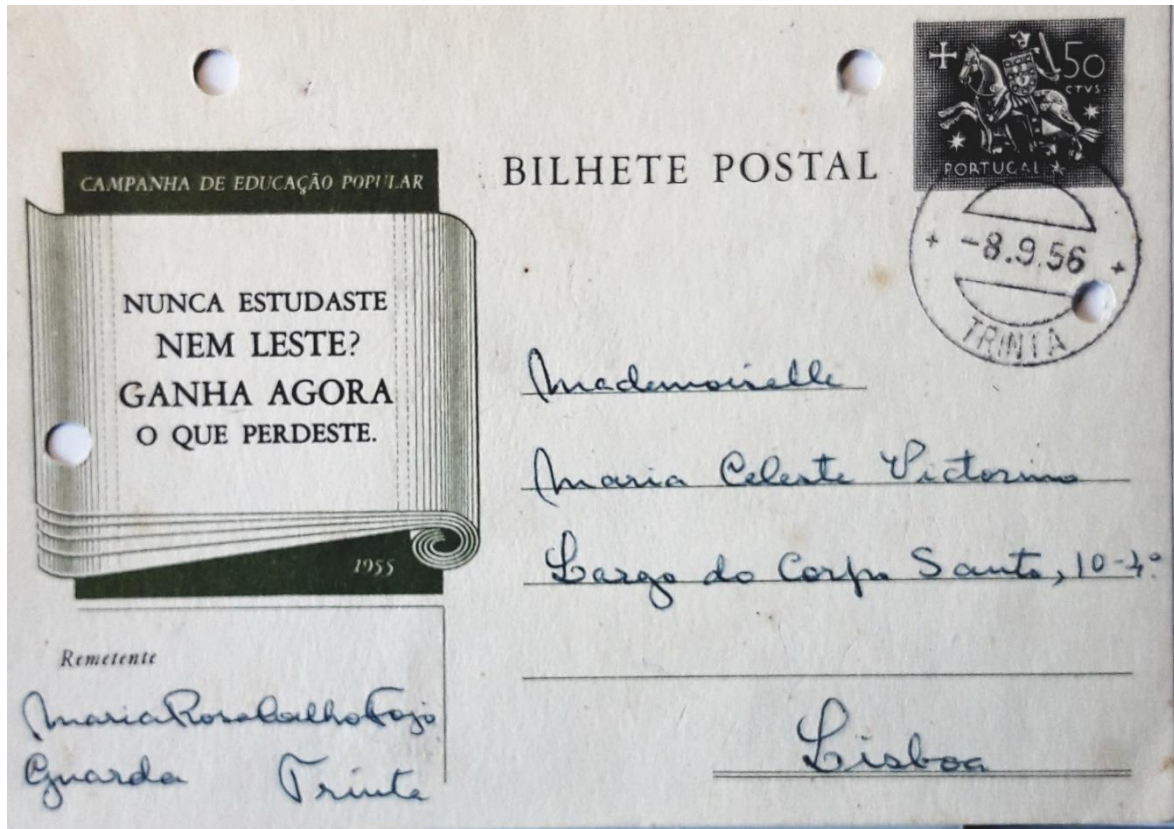 CAMPANHA DE EDUCAÇÃO POPULAR
NUNCA ESTUDASTE
NEM LESTE?
GANHA AGORA
O QUE PERDESTE.
1955
Remetente
Maria Rosa Coelho Fojo
Guarda Trinta
BILHETE POSTAL
50
CTVS.
PORTUGAL
-8.9.56
TRINTA
Mademoiselle
Maria Celeste Victorino
Largo do Corpo Santo, 10-4º
Lisboa